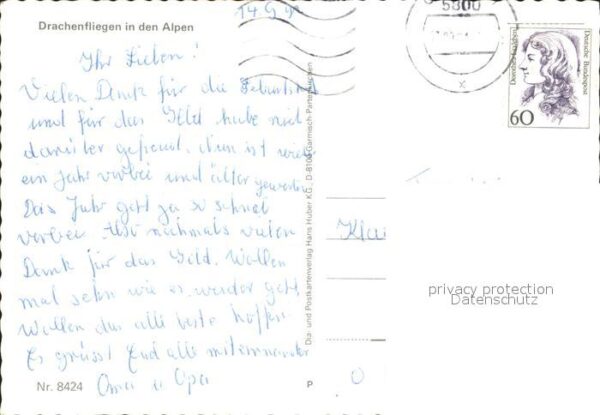 Drachenfliegen in den Alpen
14 9 9
Ihr Lieben!
Vielen Dank für die Geburtst
und für das Geld habe mich
darüber gefreut. Nun ist wieder
ein Jahr vorbei und älter geworden
Das Jahr geht ja so schnel
vorbei. Also nochmals vielen
Dank für das Geld. Wollen
mal sehen wie es weider geht,
Wollen das alle beste hoffen.
Es grüsst Eud alle miteinander
Oma u Opa
Nr. 8424
P
Dia- und Postkartenverlag Hans Huber KG., D-8100 Garmisch-Partenkirchen
5300
x
60
Deutsche Bundespost
Klau
privacy protection
Datenschutz